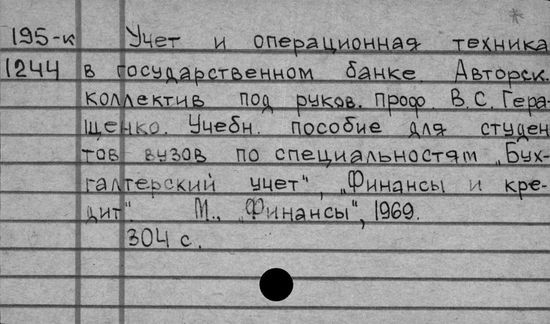 195-к Учет и операционная техника
1244 в государственном банке. Авторск.
коллектив под руков. проф. В.С. Гера-
щенко. Учебн. пособие для студен
тов вузов по специальностям „Бух-
галтерский учет", „Финансы и кре-
дит". М., „Финансы", 1969.
304 с.